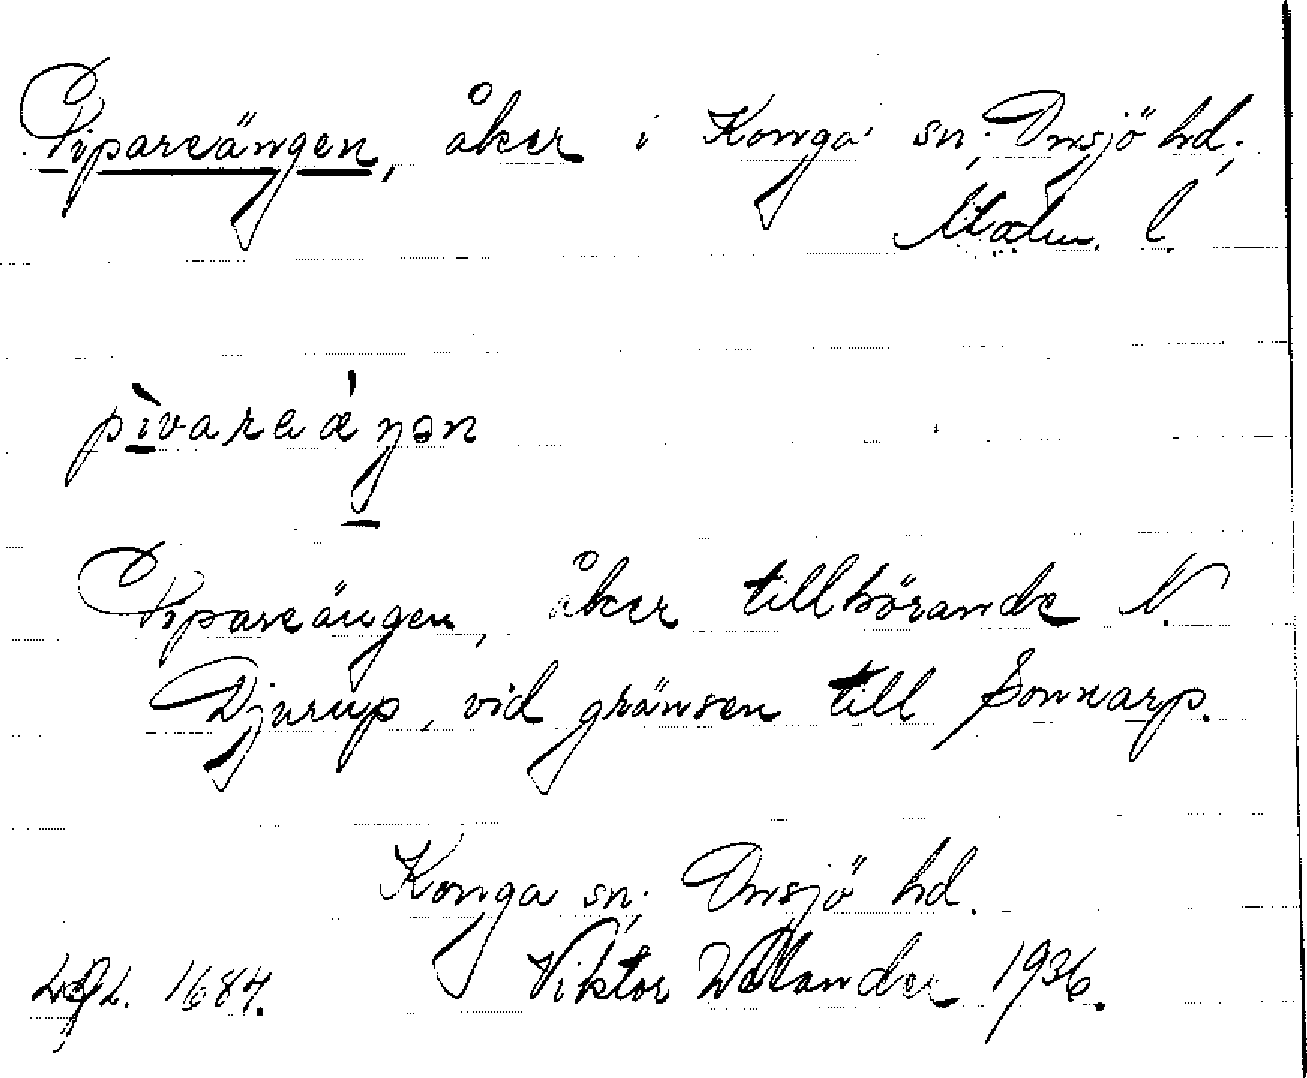 Pipareängen, åker i Konga sn; Onsjö hd;
Malm. l.
pìvareǽŋən
Pipareängen, åker tillhörande N.
Djurup, vid gränsen till Sonnarp.
Konga sn; Onsjö hd.
1684. Viktor Wålander 1936.